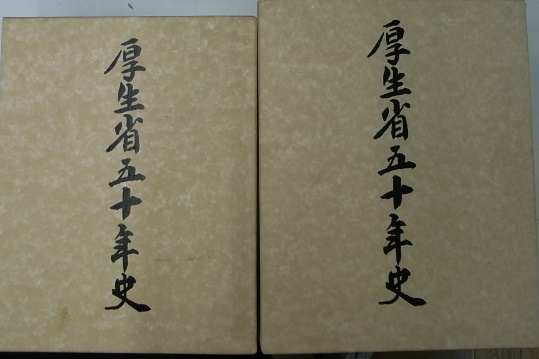 厚生省五十年史
厚生省五十年史